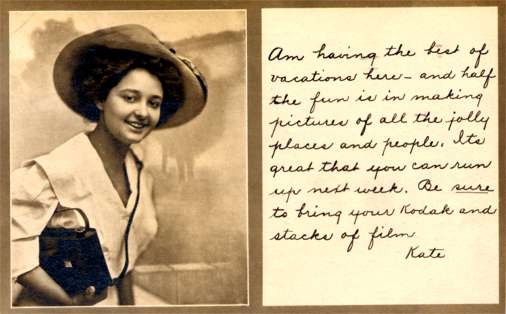 Am having the best of
vacations here – and half
the fun is in making
pictures of all the jolly
places and people. Its
great that you can run
up next week. Be sure
to bring your Kodak and
stacks of film
Kate